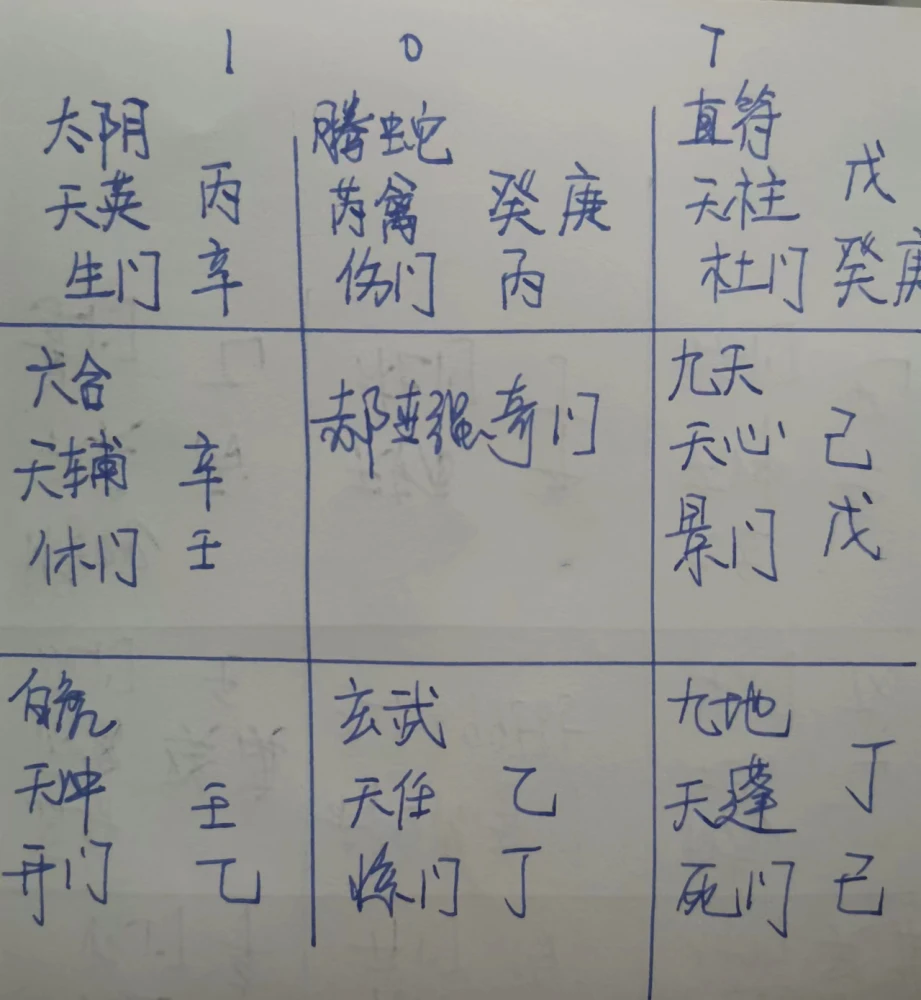 1 0 T
太阴 腾蛇 直符
天英 丙 芮禽 癸庚 天柱 戊
生门 辛 伤门 丙 杜门 癸庚
六合 九天
郝亚强奇门
天辅 辛 天心 己
休门 壬 景门 戊
白虎 玄武 九地
天冲 壬 天任 乙 天蓬 丁
开门 乙 惊门 丁 死门 己